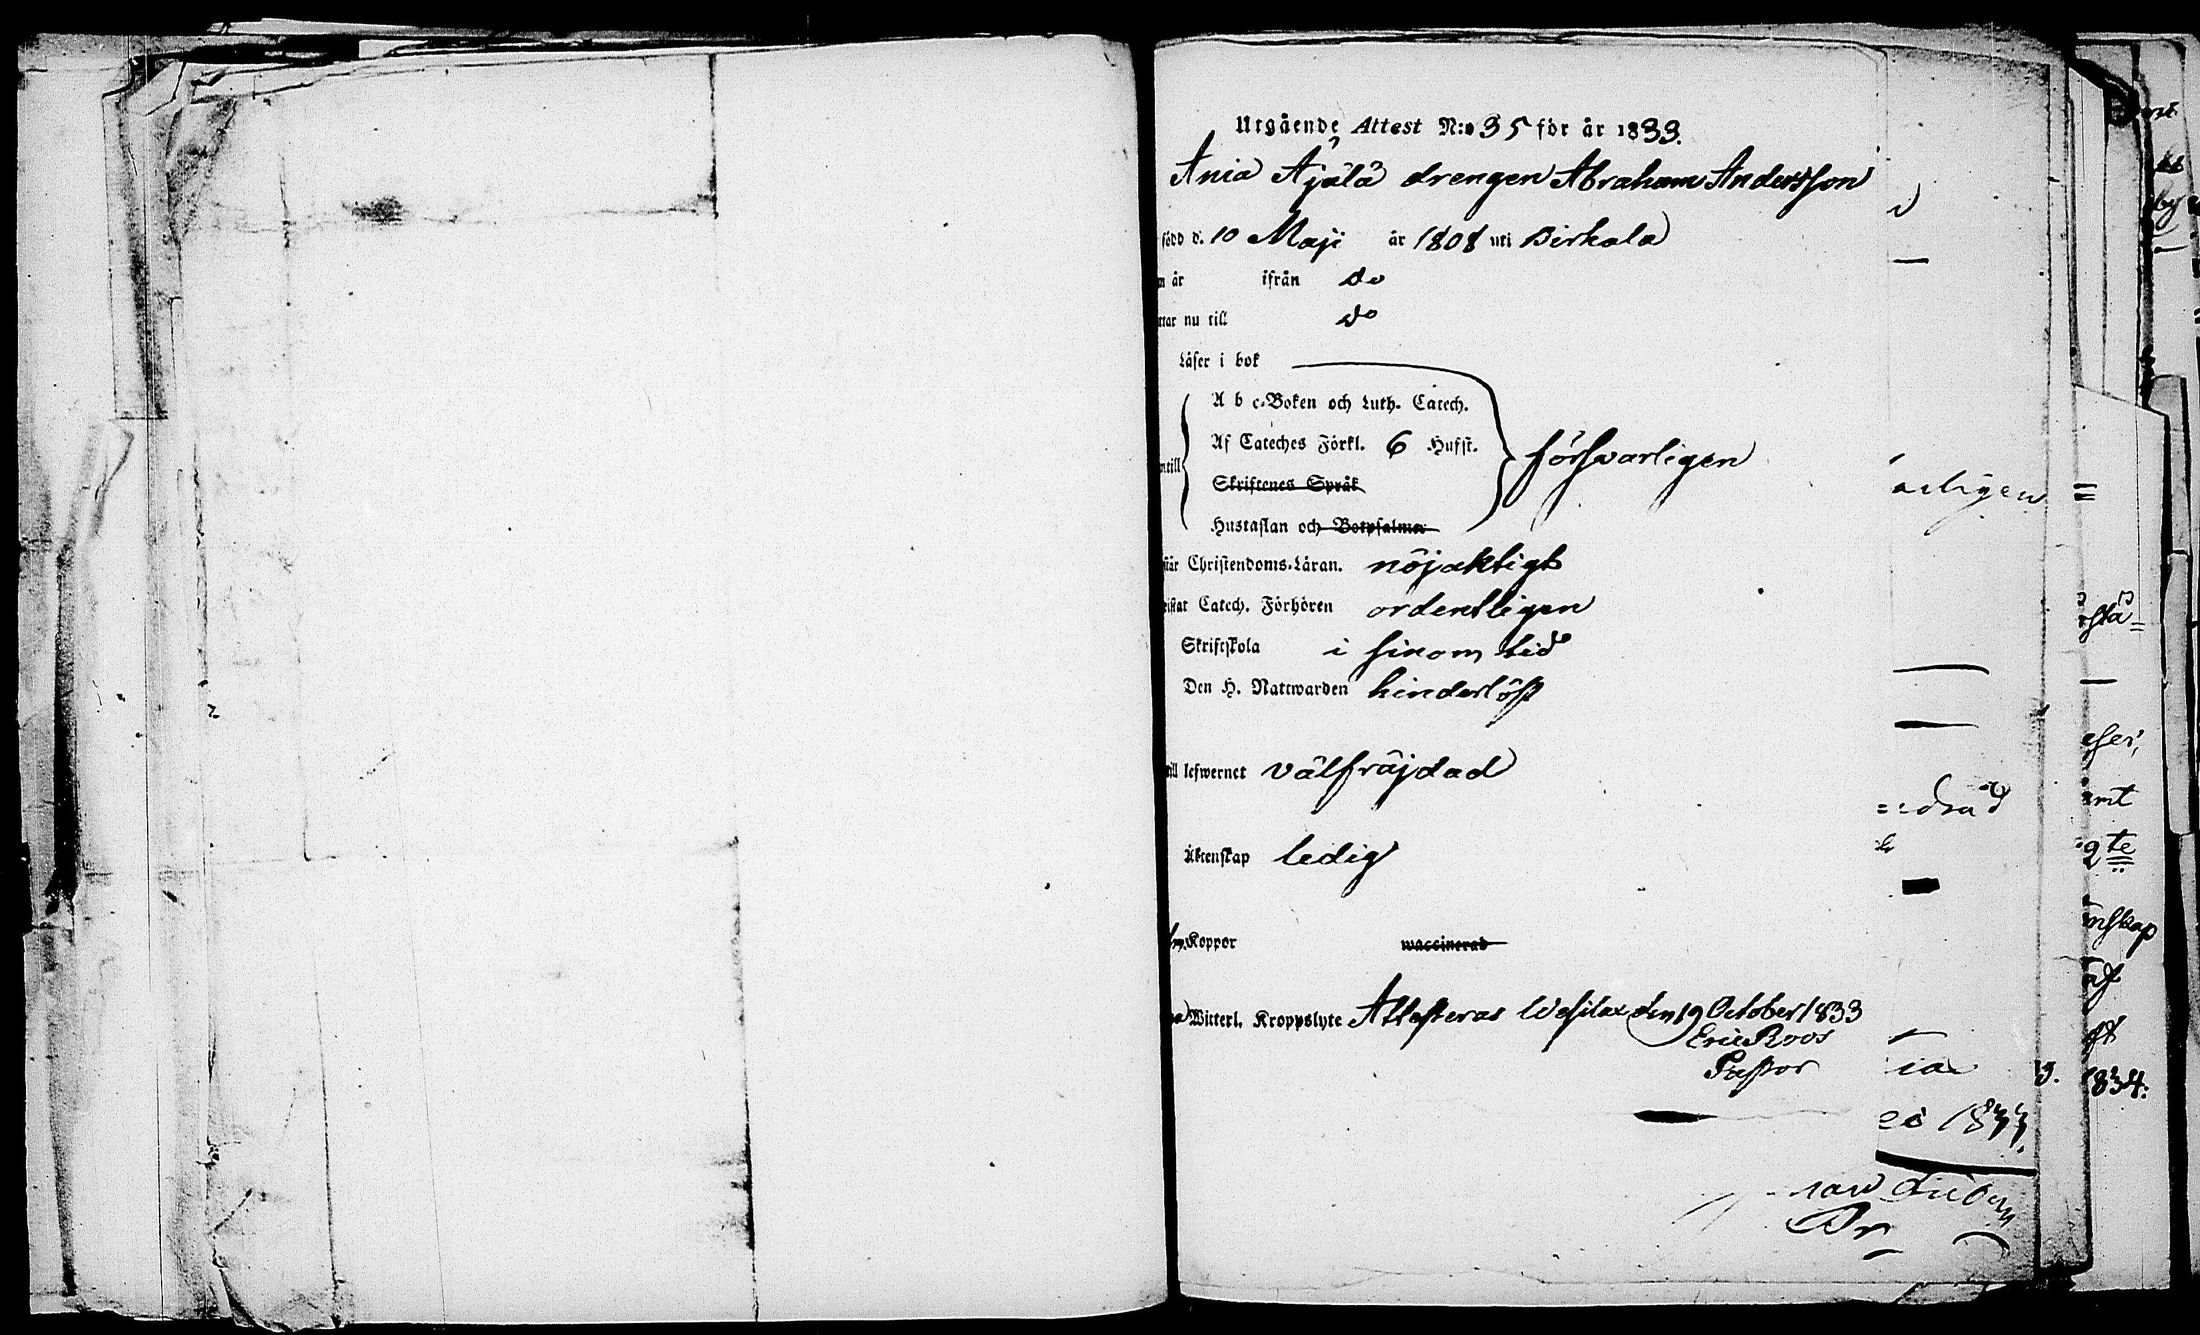 Utgående Attest N:o 35 för år 1833.
Ania Ajälä drengen Abraham Andersson
född d. 10 Maji år 1808 uti Birkala
år ifrån do
nu till do
Läser i bok
A b c-Boken och Luth. Catech.
Af Cateches Förkl. 6 Hufst. försvarligen
Skriftenes Språk
Hustaflan och Botpsalmer
Christendoms-Läran. nöjaktigt
Catech. Förhören ordentligen
Skriftskola i sinom tid
Den H. Nattwarden hinderlöst
till lefwernet välfräjdad
Äktenskap ledig
Koppor waccinerad
Witterl. Kroppslyte Attesteras Wesilax den 19 October 1833
Eric Roos
Pastor
1833.
1834.